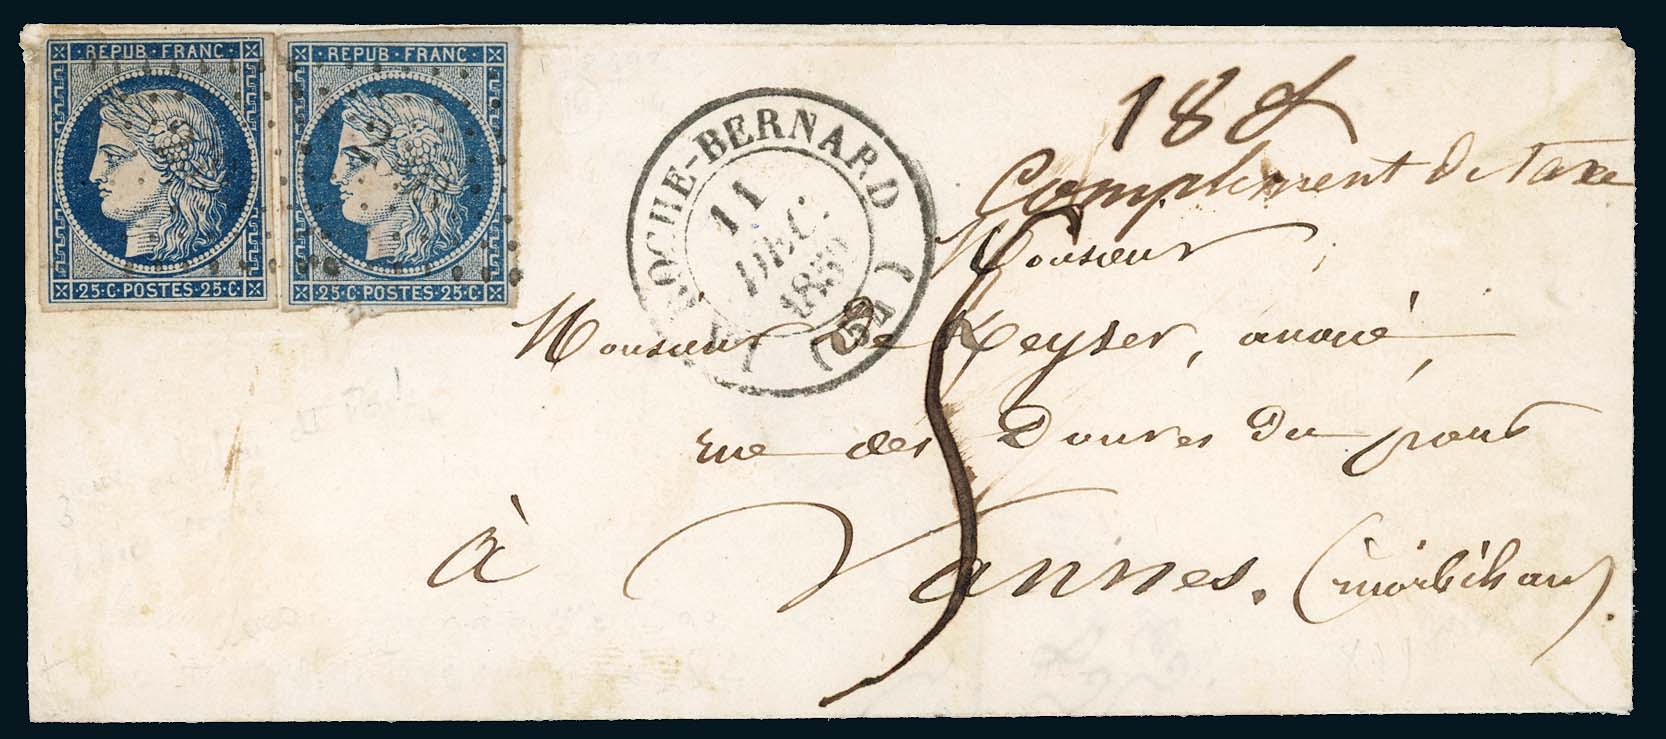 REPUB·FRANC·
25·C·POSTES·25·C
REPUB·FRANC·
25·C·POSTES·25·C
LA ROCHE-BERNARD (54)
11
DEC.
1850
18 g
Complement de taxe
5
Monsieur
Monsieur De Keyser, avoué,
rue des Douves du port
à Vannes. (morbihan).